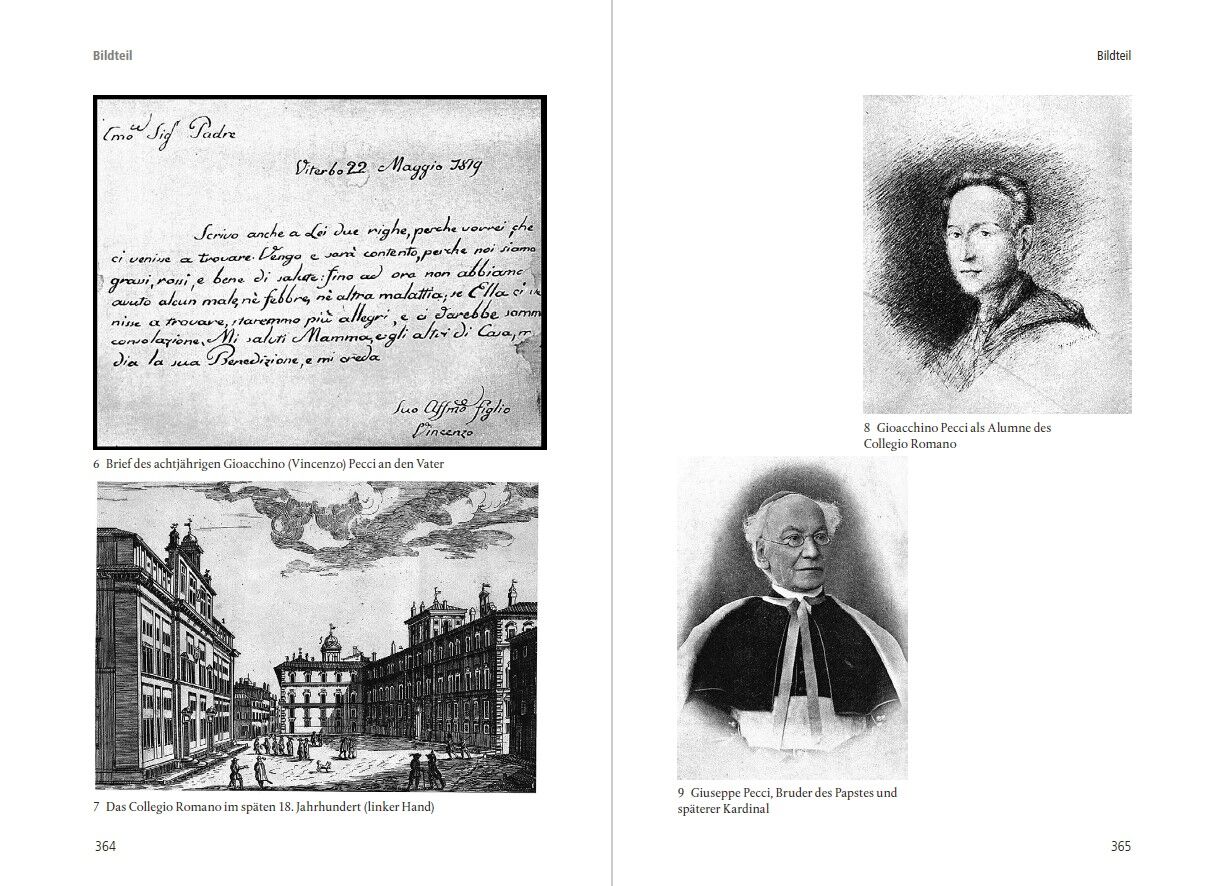 Bildteil
Emo Sigr Padre
Viterbo 22 Maggio 1819
Scrivo anche a Lei due righe, perche vorrei, che
ci venise a trovare. Venga e sarà contento, perche noi siamo
grassi, rossi, e bene di salute: fino ad ora non abbiamo
avuto alcun male, nè febbre, nè altra malattia; se Ella ci ve
nisse a trovare, staremmo più allegri, e ci darebbe somm
consolazione. Mi saluti Mamma, e gli altri di Casa, m
dia la sua Benedizione, e mi creda
Suo Affmo figlio
Vincenzo
6 Brief des achtjährigen Gioacchino (Vincenzo) Pecci an den Vater
7 Das Collegio Romano im späten 18. Jahrhundert (linker Hand)
364
Bildteil
8 Gioacchino Pecci als Alumne des
Collegio Romano
9 Giuseppe Pecci, Bruder des Papstes und
späterer Kardinal
365